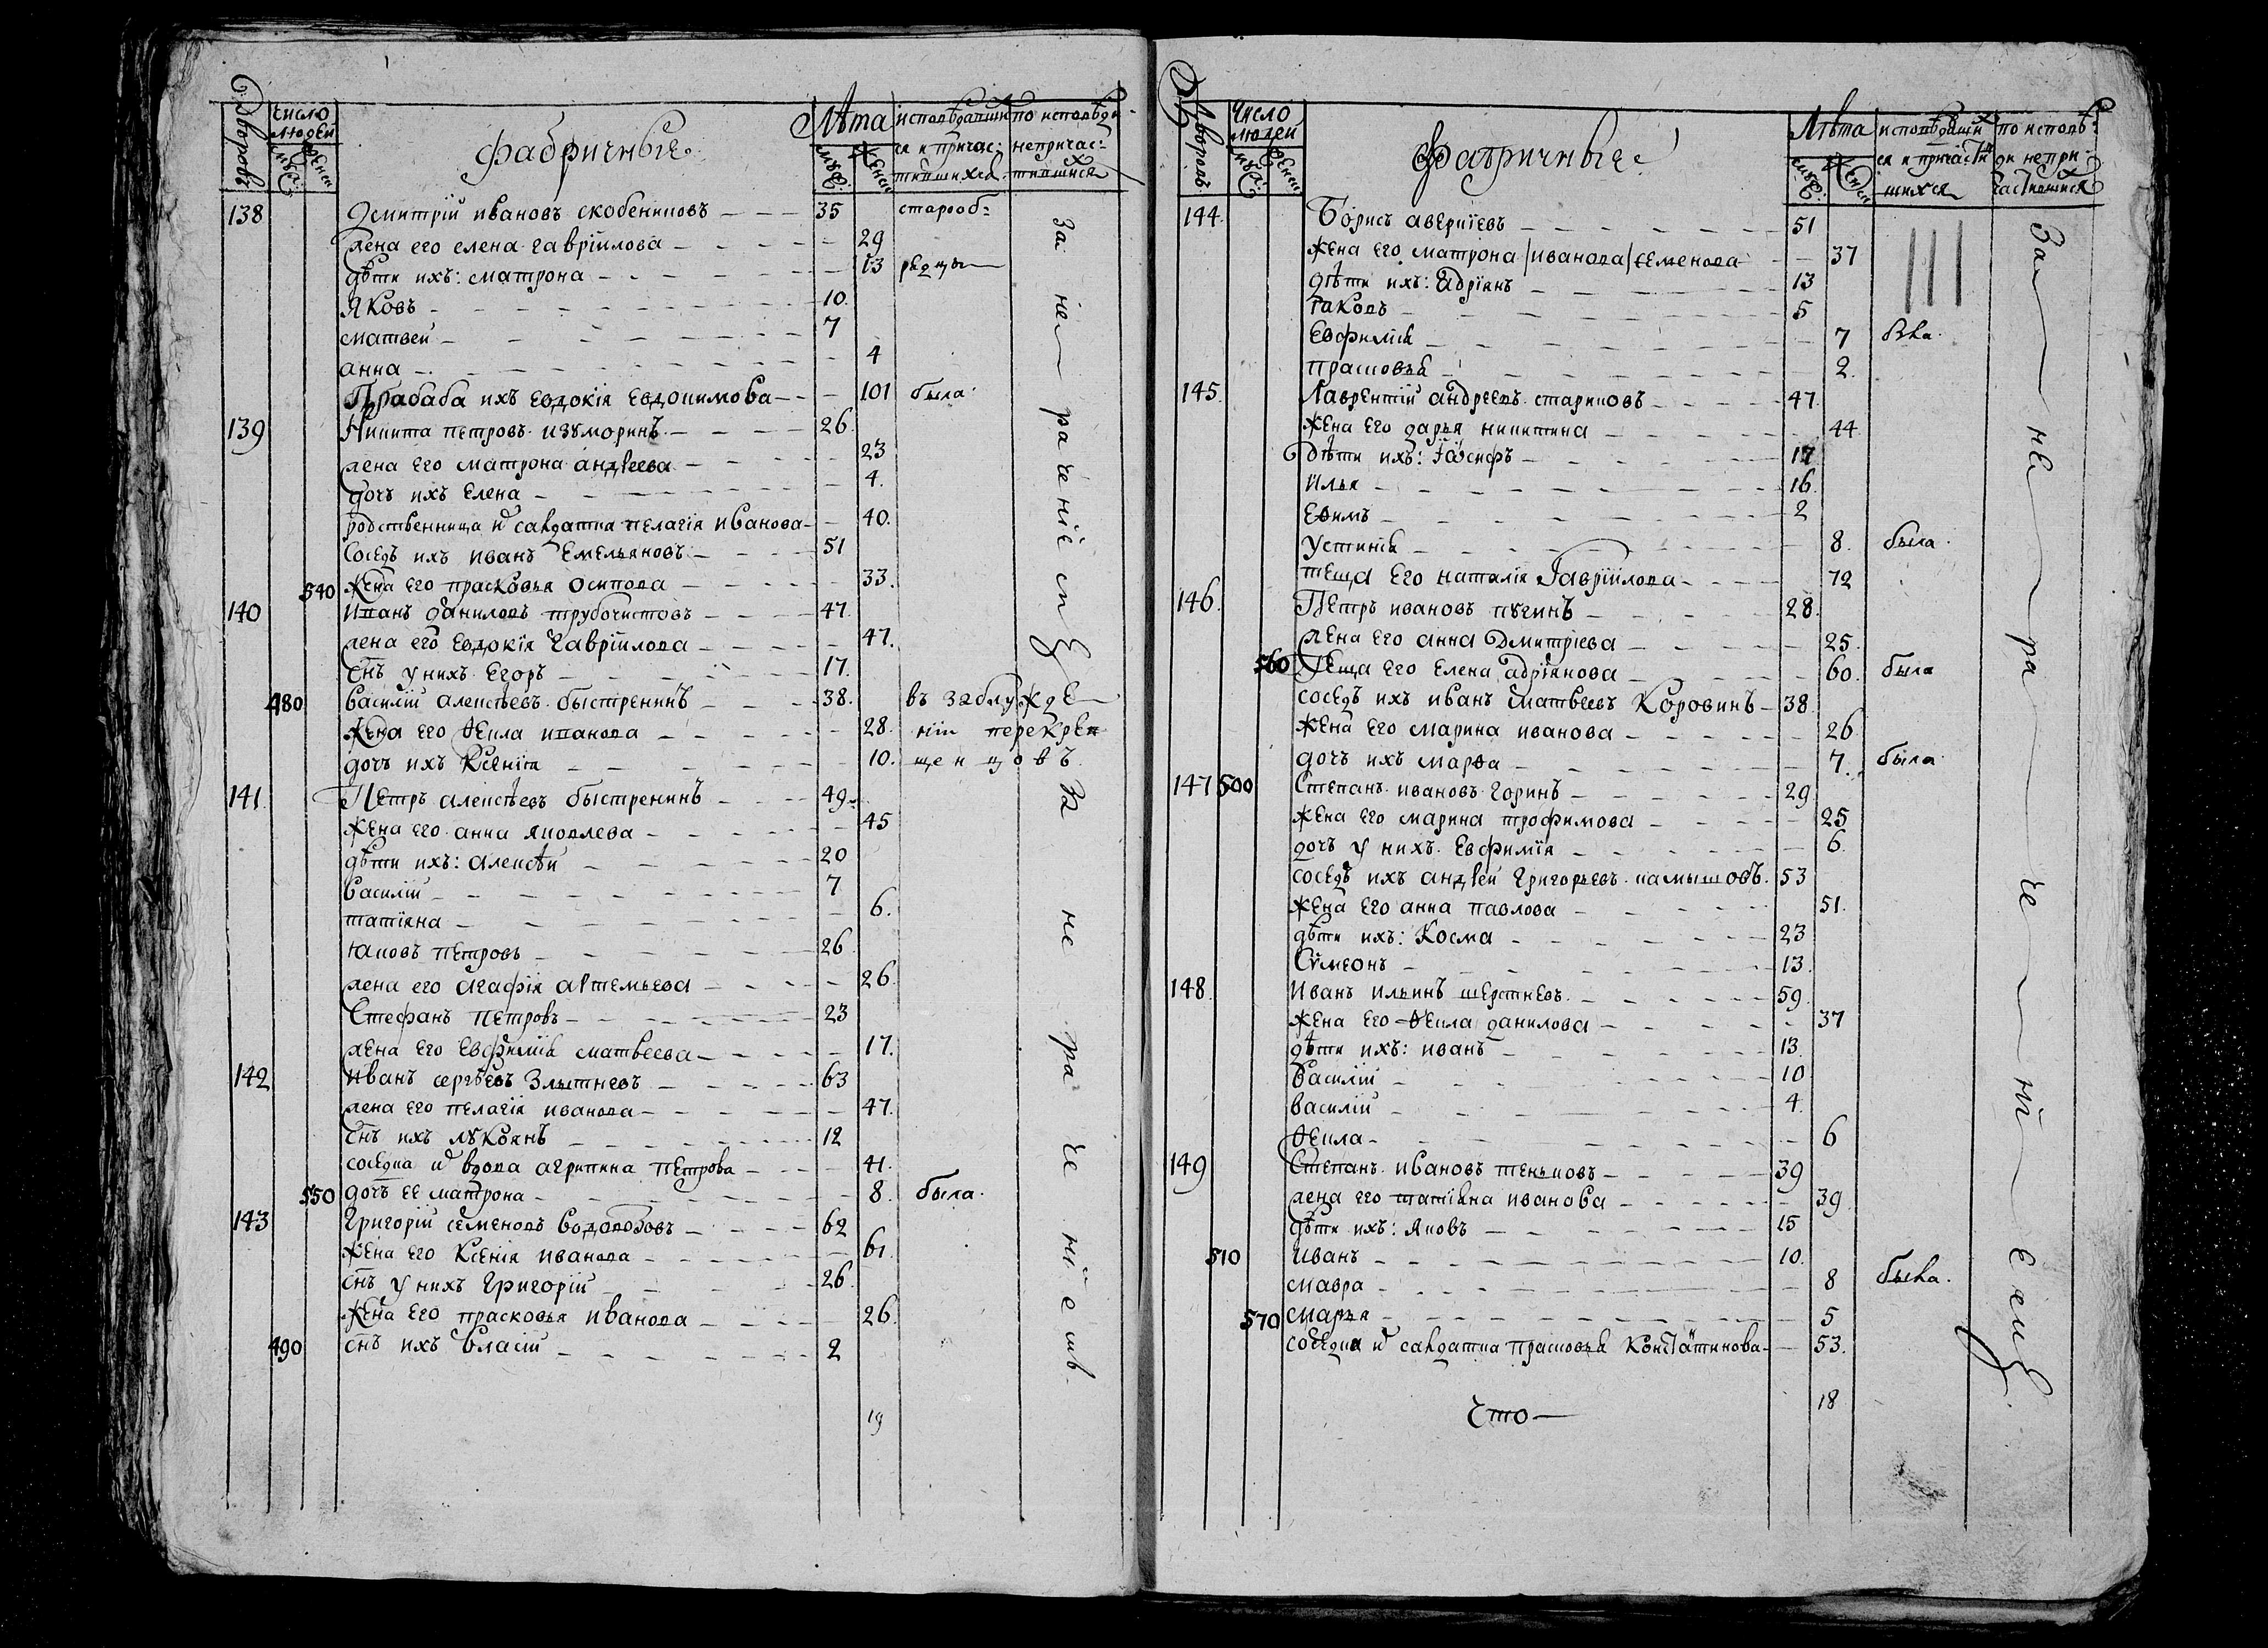 Дворовъ
Число людей
мужеска
женска
фабричные.
Лѣта
муже:
женск
исповѣдавшихся и причастившихся.
по исповѣди непричастившихся
138 Димитрій ивановъ скобениковъ — 35 старооб=
жена его елена гавріилова — 29
дѣти ихъ: матрона — 13 рядцы
Яковъ — 10.
матвей — 7
анна — 4
Прабаба ихъ Евдокія Евдокимова — 101 была
139 Никита петровъ изуморинъ — 26.
жена его матрона андреева — 23
дочь ихъ Елена — 4.
родственница и салдатка пелагія иванова — 40.
соседъ ихъ иванъ Емельяновъ — 51
540 жена его прасковья осипова — 33.
140 иванъ даниловъ трубочистовъ — 47.
жена его Евдокія гавріилова — 47.
снъ у нихъ Егоръ — 17.
480 василій алексѣевъ быстренинъ — 38. въ заблужде
жена его Ѳекла иванова — 28. ніи перекре
дочь ихъ Ксенія — 10. щенцовъ.
141. Петръ алексѣевъ быстренинъ — 49.
жена его анна яковлева — 45
дѣти ихъ: алексѣй — 20
василій — 7
татіяна — 6.
іаковъ петровъ — 26.
жена его агафія артемьева — 26.
Стефанъ петровъ — 23
жена его Евфимія матвеева — 17.
142 иванъ сергѣевъ Злытневъ — 63
жена его пелагія иванова — 47.
снъ ихъ лукоянъ — 12
соседка и вдова агрипина петрова — 41.
550 дочь ее матрона — 8. была.
143 григорій семеновъ Водовозовъ — 62
жена его Ксенія иванова — 61.
снъ у нихъ григорій — 26.
жена его прасковья иванова — 26.
490 снъ ихъ власій — 2
19
За нераченіемъ
За нераченіемъ
Дворовъ
Число людей
мужеска
женска
Фабричные
Лѣта
муже:
женск
исповѣдавшихся и причастившихся
по исповѣди непричастившихся
144. Борисъ аверкіевъ — 51
жена его матрона /иванова/ семенова — 37
дѣти ихъ: адріянъ — 13
іаковъ — 5
Евфимія — 7 была.
прасковья — 2.
145. Лаврентій андреевъ стариковъ — 47.
жена его дарья никитина — 44
дѣти ихъ: іосифъ — 17
илья — 16.
Ефимъ — 2
устинія — 8. была.
теща его наталія Гавріилова — 72
146. Петръ ивановъ пугинъ — 28.
жена его анна Дмитріева — 25.
560 Теща его Елена адріянова — 60. была
соседъ ихъ иванъ матвеевъ Коровинъ — 38
жена его марина иванова — 26
дочь ихъ марѳа — 7. была
147 500 Степанъ ивановъ горинъ — 29
жена его марина трофимова — 25
дочь у нихъ Евфимія — 6.
соседъ ихъ андрей григорьевъ камышовъ. 53
жена его анна павлова — 51.
дѣти ихъ: Косма — 23
Сумеонъ — 13.
148. иванъ ильинъ шерстневъ. — 59.
жена его Ѳекла данилова — 37
дѣти ихъ: иванъ — 13.
Василій — 10
василій — 4.
Ѳекла — 6
149 Степанъ ивановъ теньковъ — 39
жена его татіяна иванова — 39.
дѣти ихъ: Яковъ — 15
510 иванъ — 10.
мавра — 8 была.
570 марья — 5
соседка и салдатка прасковья Констатинова — 53.
18
Сто—
За нераченіемъ